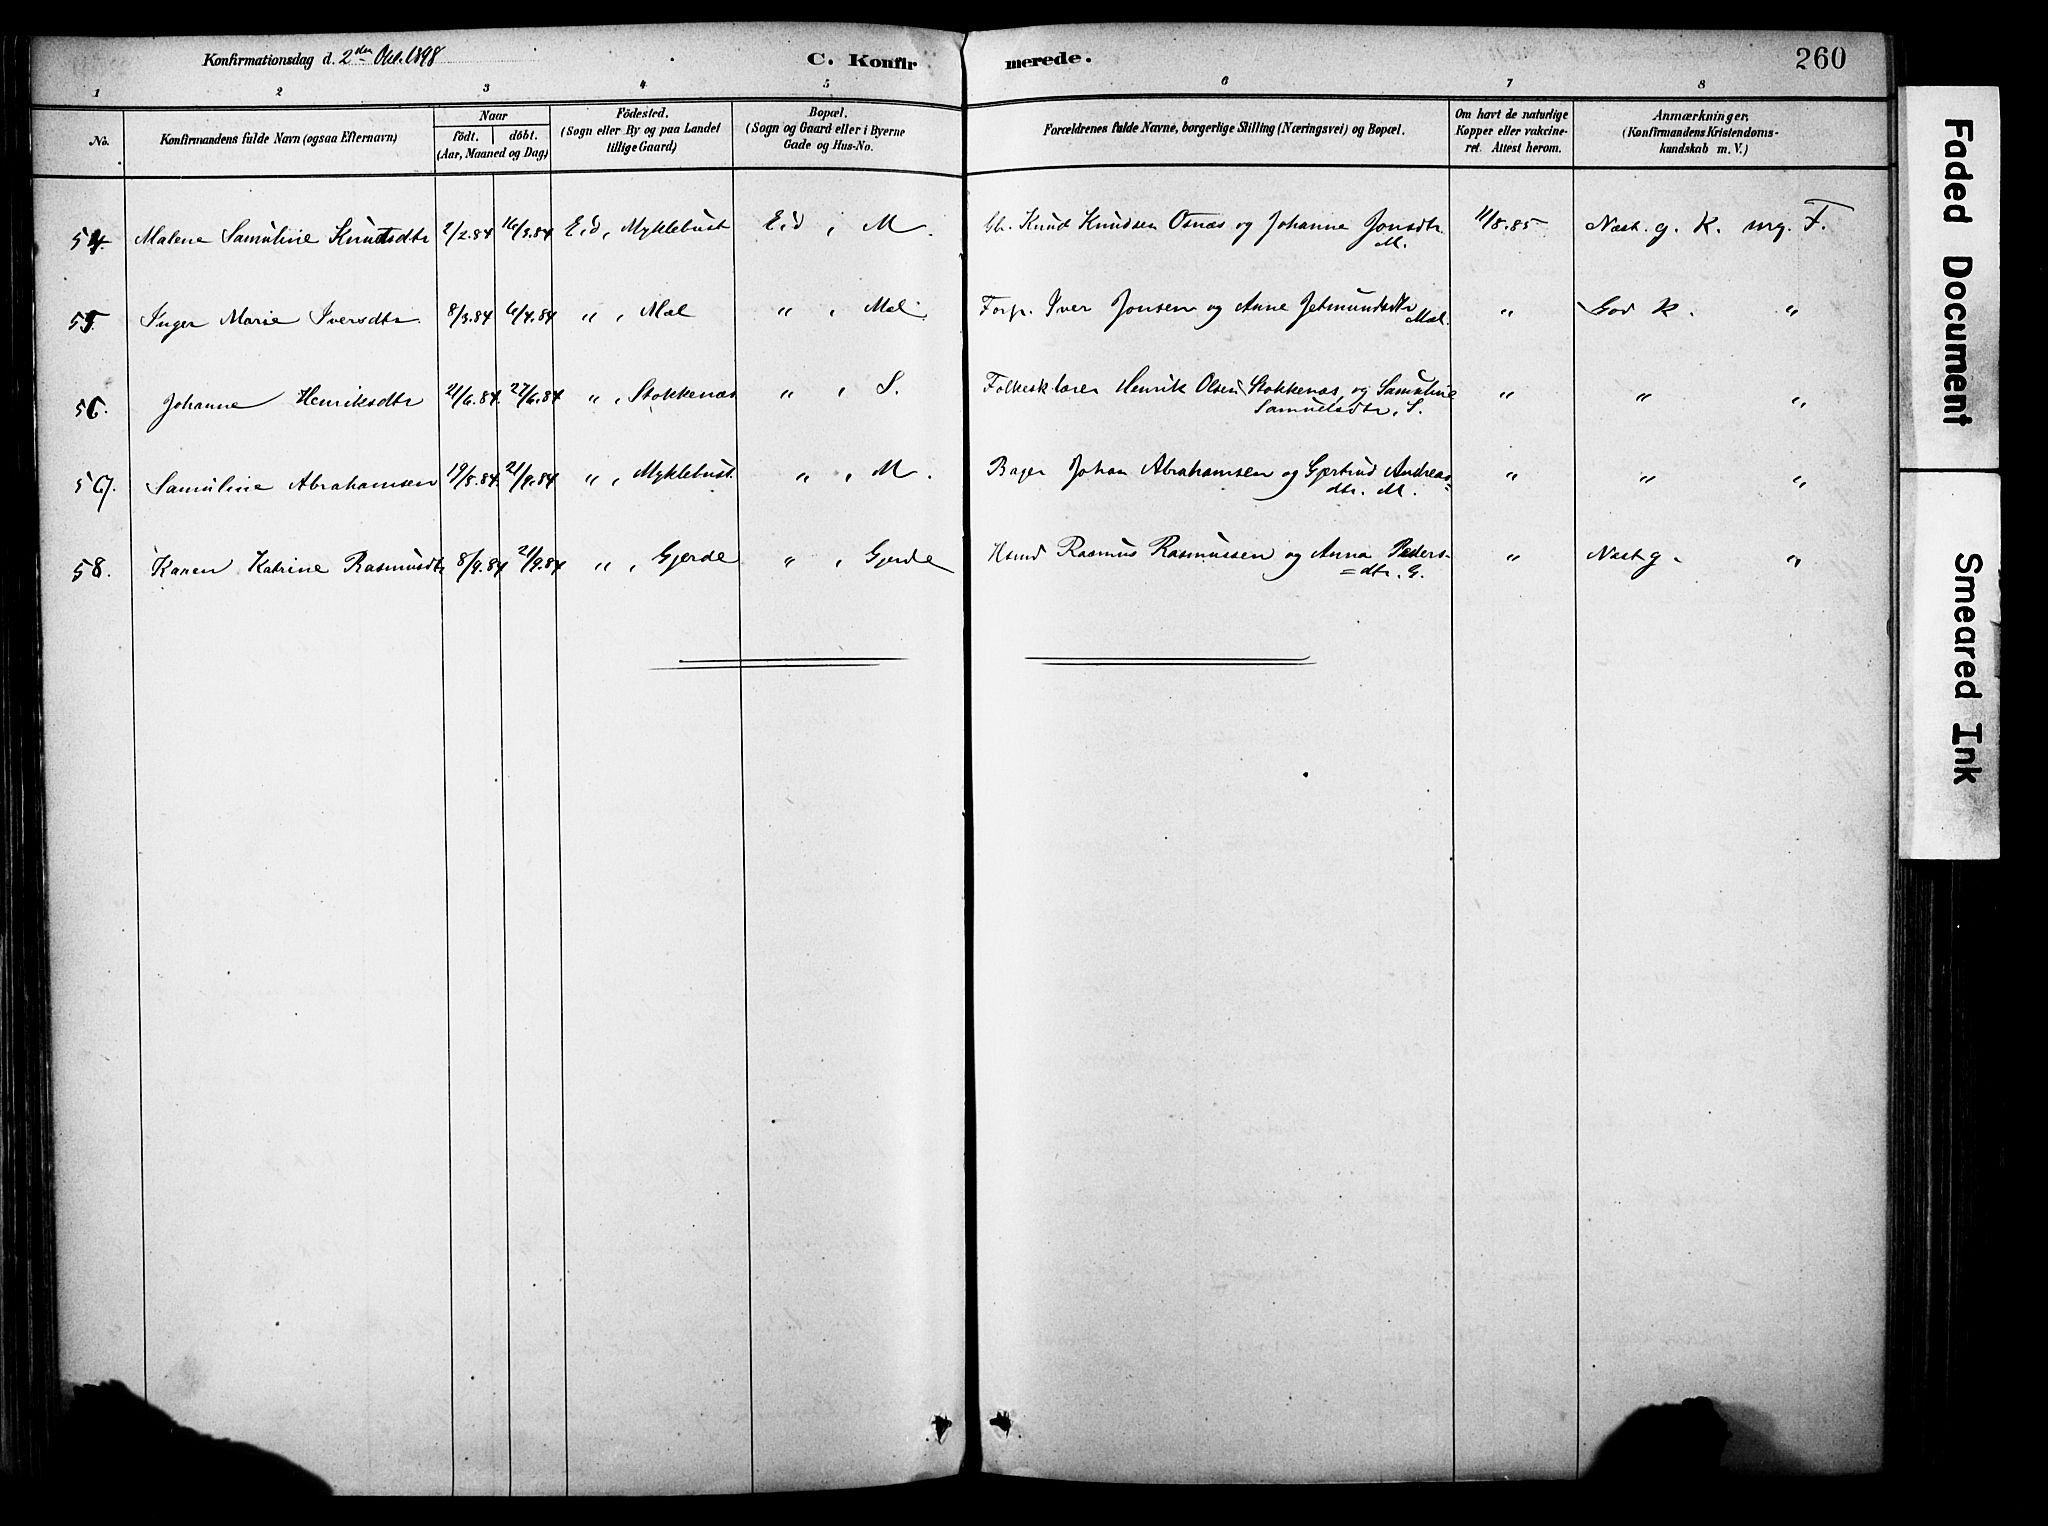 Konfirmationsdag d. 2den Okt. 1898
C. Konfirmerede.
260
1 2 3 4 5 6 7 8
No. Konfirmandens fulde Navn (ogsaa Efternavn) Naar Födt. döbt. (Aar, Maaned og Dag) Födested. (Sogn eller By og paa Landet tillige Gaard) Bopæl. (Sogn og Gaard eller i Byerne Gade og Hus-No. Forældrenes fulde Navne, borgerlige Stilling (Næringsvei) og Bopæl. Om havt de naturlige Kopper eller vakcineret. Attest herom. Anmærkninger. (Konfirmandens Kristendomskundskab m. V.)
54. Malene Samuline Knutsdtr 2/2.84 16/3.84 Eid, Myklebust Eid, M. Knud Knudsen Osnæs og Johanne Jonsdtr. M. 11/8.85 Næst. g. K. mg. F.
55. Inger Marie Iversdtr. 8/3.84 6/4.84 " , Mæl " , Mæl Forp. Iver Jonsen og Anne Jetmundsdtr Mæl. " God K. "
56. Johanne Henriksdtr 21/6.84. 27/6.84 " , Stokkenæs " , S. Folkesklærer Henrik Olsen Stokkenæs, og Samuline Samuelsdtr, S. " " "
57. Samuline Abrahamsen 19/8.84. 21/9.84 " , Myklebust " , M. Bager Johan Abrahamsen og Gjertrud Andreasdtr. M. " " "
58. Karen Katrine Rasmusdtr 8/9.84 21/9.84 " , Gjerde " , Gjerde Hsmd Rasmus Rasmussen og Anna Pedersdtr. G. " Næst g. "
Faded Document
Smeared Ink